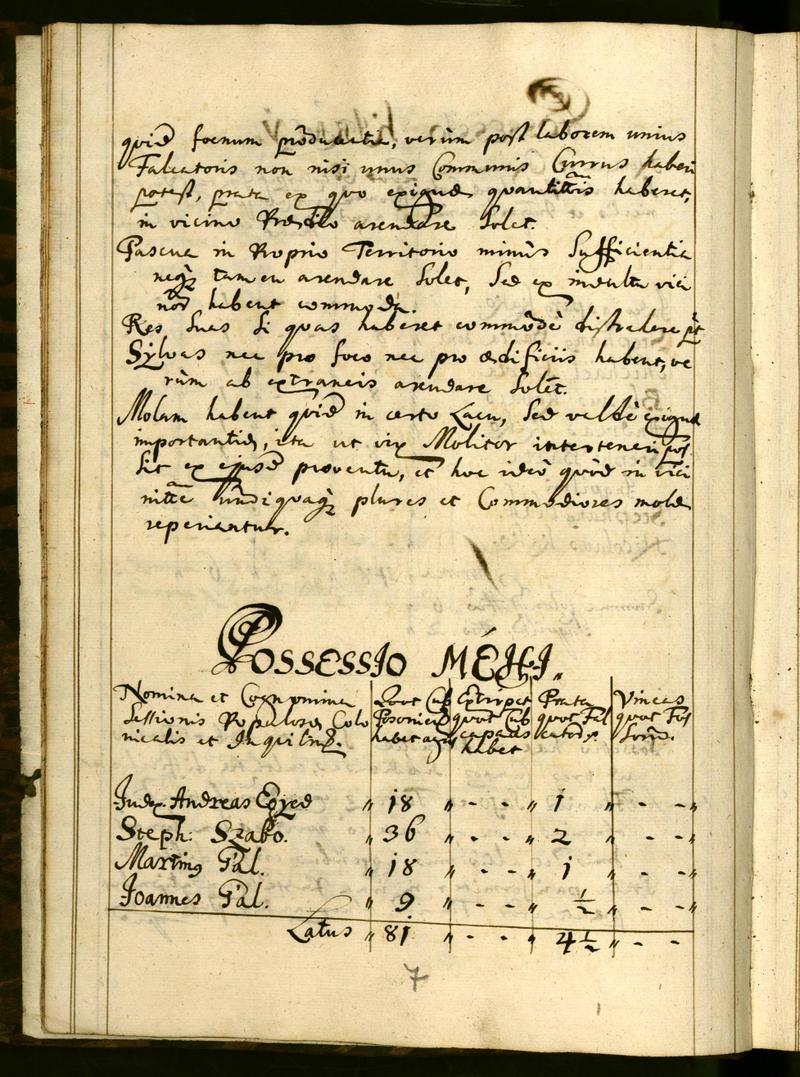 quid foenum producatur, verum post laborem unius
Falcatoris non nisi unus Communis Currus haberi
potest, prata ex quo exiguae quantittis haberet,
in vicino Praedio arendare Solet.
Pascua in Proprio Territorio minus Sufficientia
neq tamen arendare Solet, Sed ex indulta vici
nor habent commoda.
Res Suas Si quas haberet commodè distrahere pōt
Sylvas nec pro foco nec pro aedificiis habent, ve
rum ab extraneis arendare Solet.
Molam habent quid in certo Lacu, Sed valdè exiguae
importantiae, ita ut vix Molitor interteneri possit
Sit ex ejusd proventu, et hoc ideò quòd in vici
nitte undiquaq plures et Commodiores molae
reperiantur.
POSSESSIO MÉHI.
Nomina et Cognomina Quot Cub Extirpat Prata Vineas
Sessionis Populoru Colo Posonien quot Cub quot Fal quot Fos
nicalis et Inquilinor. habet agros capaces catoru Soru.
habet
Judex Andreas Egyed " 18 " - - " 1 " - - "
Steph: Szabo. " 36 " - - " 2 " - - "
Martinus Gál. " 18 " - - " 1 " - - "
Joannes Gál. " 9 " - - " ½ " - - "
Latus " 81 " - - " 4½ " - -
7